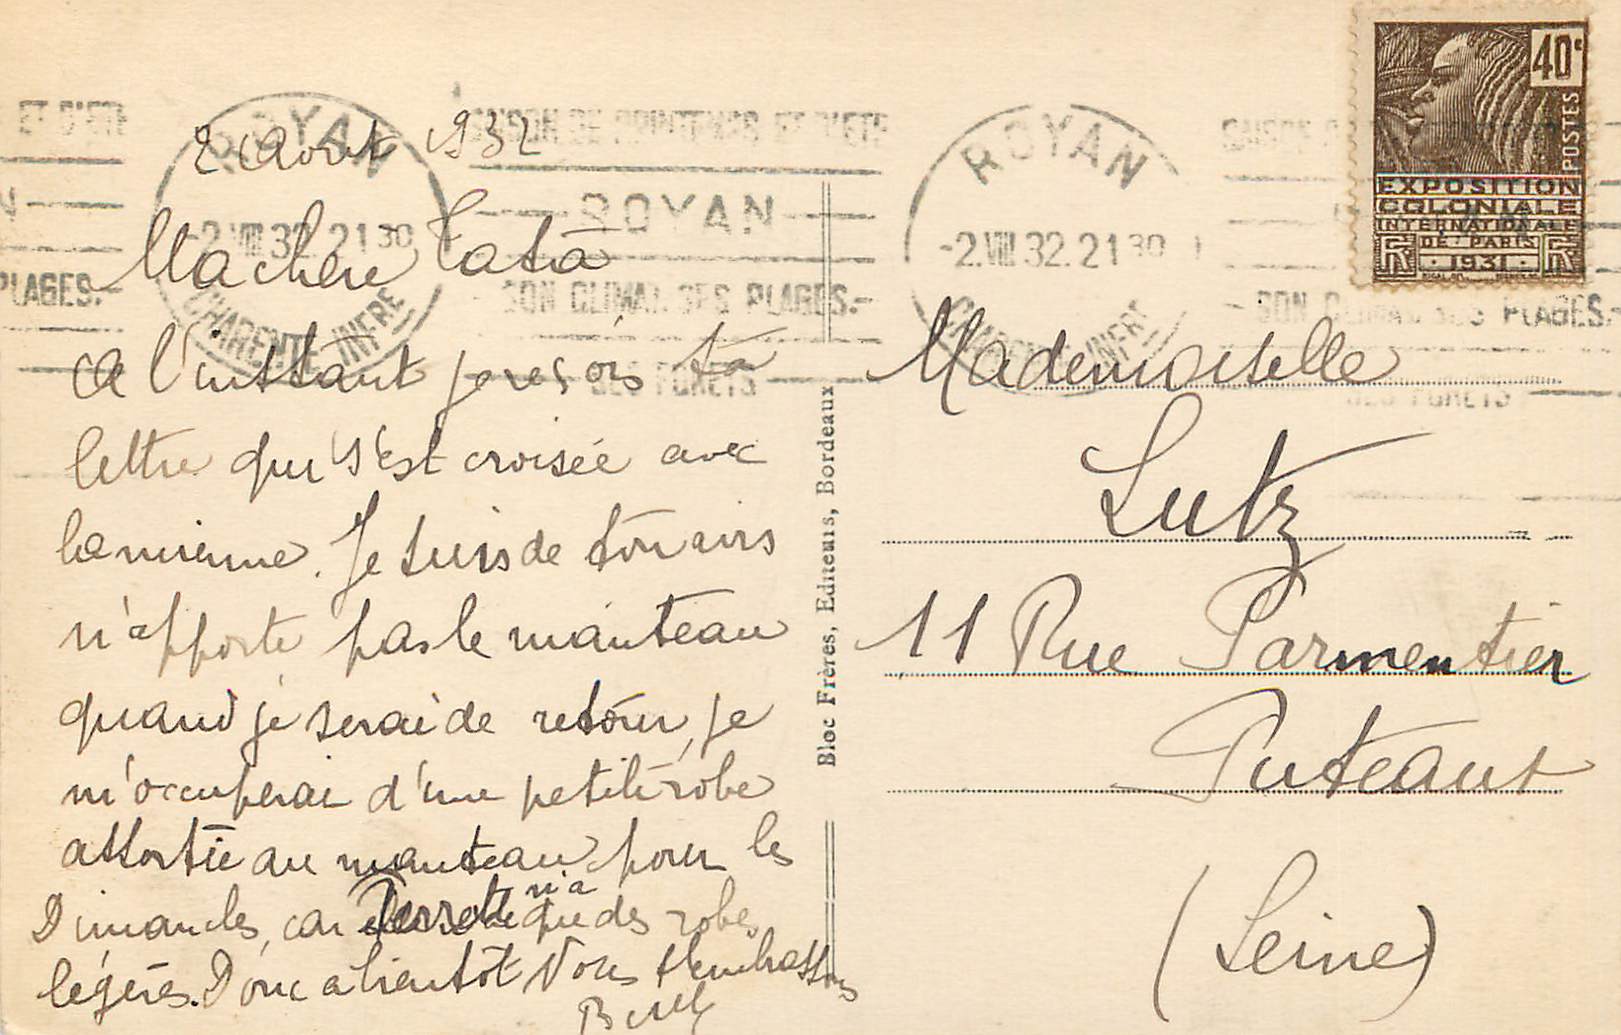 2 Août 1932
Ma chère Tata
A l'instant je reçois ta
lettre qui s'est croisée avec
la mienne. Je suis de ton avis
n'apporte pas le manteau
quand je serai de retour, je
m'occuperai d'une petite robe
assortie au manteau pour les
Dimanches, car n'a que des robes
légères. Donc a bientôt Nous t'embrassons
Mademoiselle
Lutz
11 Rue Parmentier
Puteaux
(Seine)
Bloc Frères, Editeurs, Bordeaux
40c
POSTES
EXPOSITION
COLONIALE
INTERNATIONALE
DE PARIS
RF 1931 RF
ROYAN
-2.VIII 32.21 30
CHARENTE INFRE
SAISON DE PRINTEMPS ET D'ETE
ROYAN
SON CLIMAT. SES PLAGES.-
SES FORETS
ROYAN
-2.VIII 32.21 30
CHARENTE INFRE
SON CLIMAT. SES PLAGES.-
SES FORETS
ET D'ETE
N
PLAGES.-